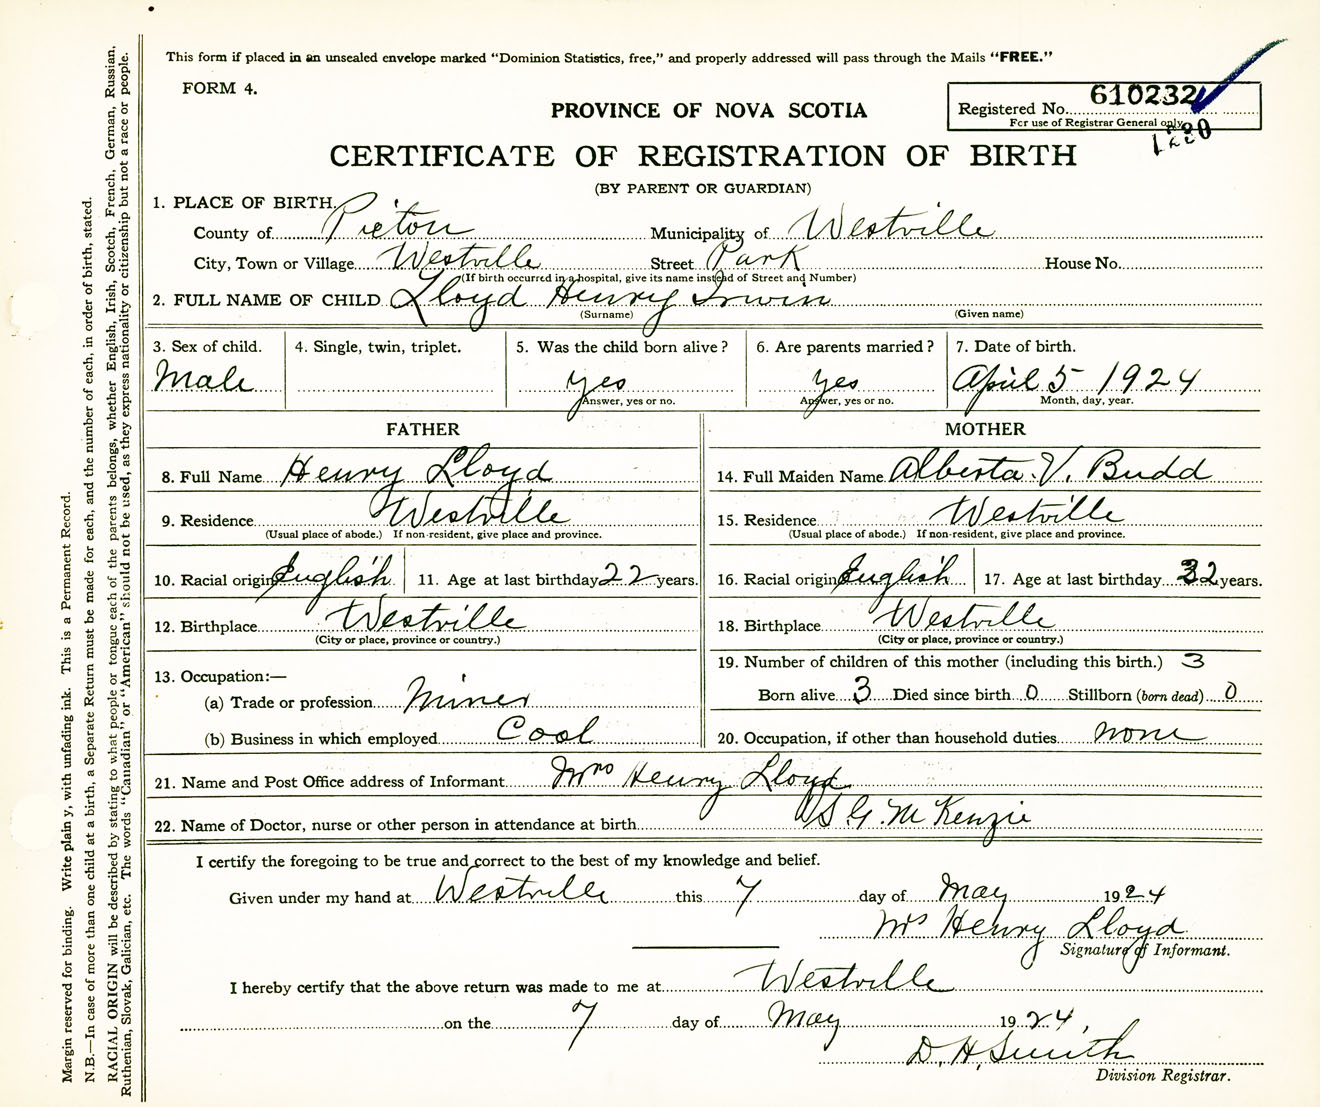 This form if placed in an unsealed envelope marked "Dominion Statistics, free," and properly addressed will pass through the Mails "FREE."
FORM 4.
PROVINCE OF NOVA SCOTIA
Registered No. 610232
For use of Registrar General only.
1220
CERTIFICATE OF REGISTRATION OF BIRTH
(BY PARENT OR GUARDIAN)
1. PLACE OF BIRTH.
County of Pictou Municipality of Westville
City, Town or Village Westville Street Park House No.
(If birth occurred in a hospital, give its name instead of Street and Number)
2. FULL NAME OF CHILD Lloyd Henry Irwin
(Surname) (Given name)
3. Sex of child. 4. Single, twin, triplet. 5. Was the child born alive? 6. Are parents married? 7. Date of birth.
Male yes yes April 5 1924
Answer, yes or no. Answer, yes or no. Month, day, year.
FATHER MOTHER
8. Full Name Henry Lloyd 14. Full Maiden Name Alberta V. Budd
9. Residence Westville 15. Residence Westville
(Usual place of abode.) If non-resident, give place and province. (Usual place of abode.) If non-resident, give place and province.
10. Racial origin English 11. Age at last birthday 22 years. 16. Racial origin English 17. Age at last birthday 32 years.
12. Birthplace Westville 18. Birthplace Westville
(City or place, province or country.) (City or place, province or country.)
13. Occupation:— 19. Number of children of this mother (including this birth.) 3
(a) Trade or profession Miner Born alive 3 Died since birth 0 Stillborn (born dead) 0
(b) Business in which employed Coal 20. Occupation, if other than household duties none
21. Name and Post Office address of Informant Mrs Henry Lloyd
22. Name of Doctor, nurse or other person in attendance at birth S. G. McKenzie
I certify the foregoing to be true and correct to the best of my knowledge and belief.
Given under my hand at Westville this 7 day of May 1924
Mrs Henry Lloyd
Signature of Informant.
I hereby certify that the above return was made to me at Westville
on the 7 day of May 1924
D. H. Smith
Division Registrar.
Margin reserved for binding. Write plainly, with unfading ink. This is a Permanent Record.
N.B.—In case of more than one child at a birth, a Separate Return must be made for each, and the number of each, in order of birth, stated.
RACIAL ORIGIN will be described by stating to what people or tongue each of the parents belongs, whether English, Irish, Scotch, French, German, Russian,
Ruthenian, Slovak, Galician, etc. The words "Canadian" or "American" should not be used, as they express nationality or citizenship but not a race or people.